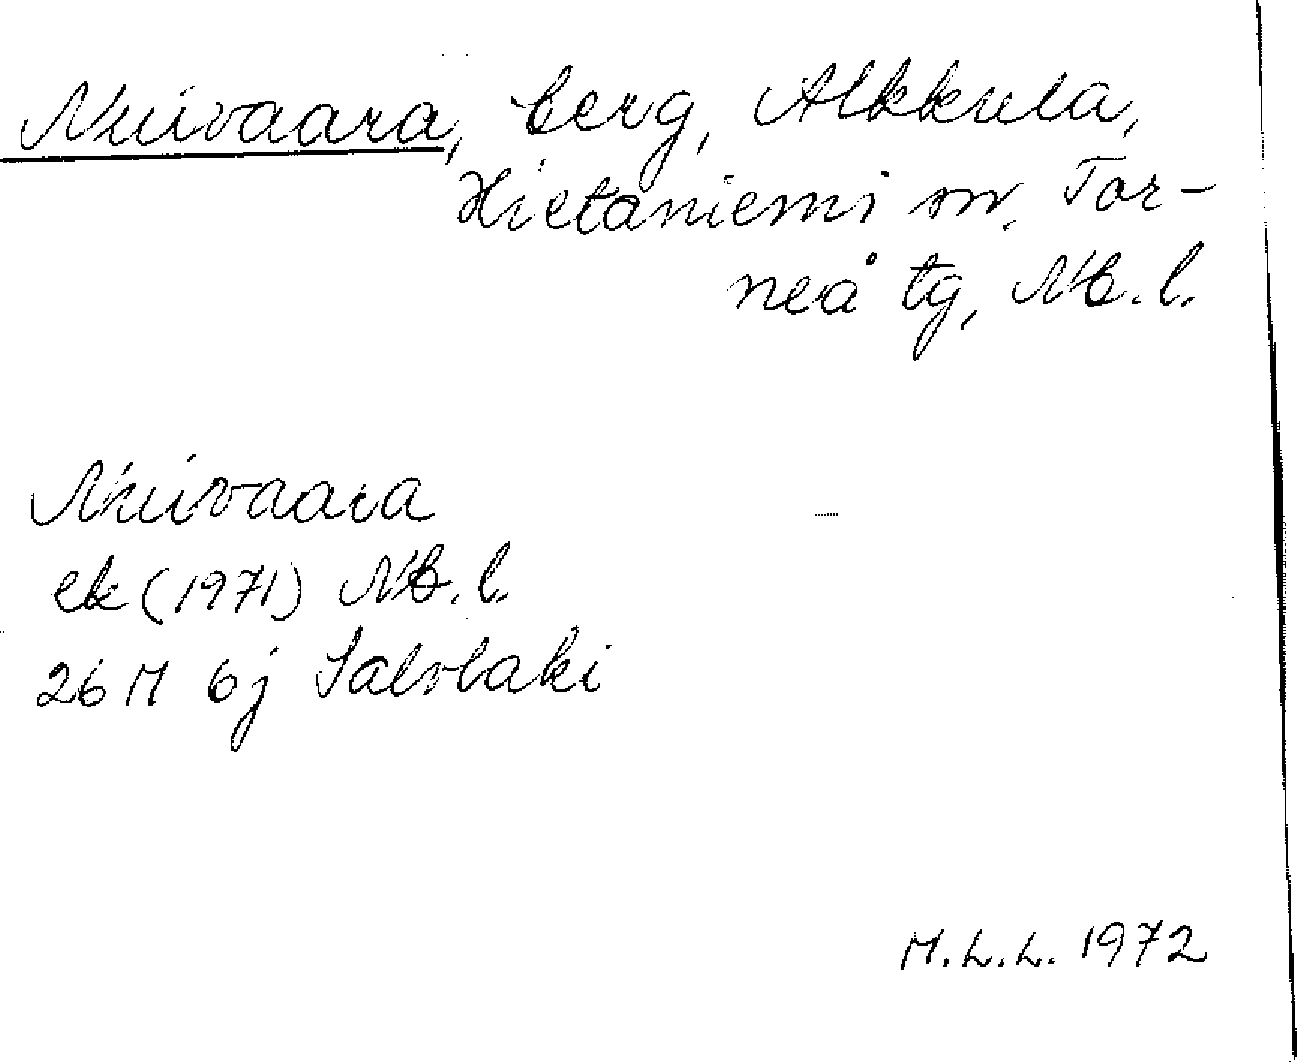 Niuvaara, berg, Alkkula,
Hietaniemi sn, Tor-
neå tg, Nb. l.
Niuvaara
ek (1971) Nb. l.
26 M 6j
M.L.L. 1972